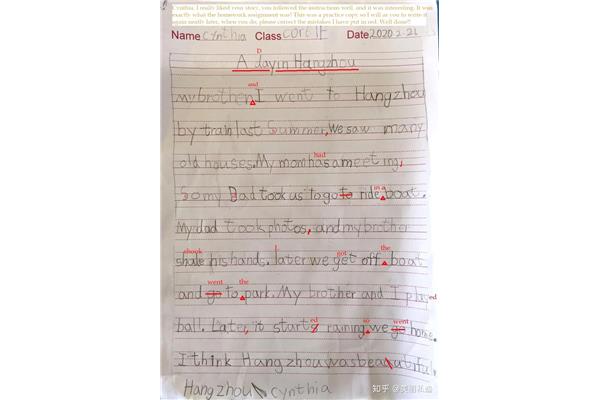 Cynthia, I really liked your story, you followed the instructions well, and it was interesting. It was
exactly what the homework assignment was! This was a practice copy so I will as you to write it
again neatly later, when you do, please correct the mistakes I have put in red. Well done!!
Name cynthia Class core 1F Date 2020 2-21
D
A dayin Hangzhou
and
my brother I went to Hangzhou
by train last Summer, We saw many
old houses. My mom has a meeting,
had
So my Dad took us to go to ride boat.
in a
My dad took photos, and my brother
shook got the
shake his hands. later we get off boat
went the
and go to park. My brother and I play
ed
ed so went
ball. Later, it starts raining, we go home.
I think Hangzhou was beautiful
Hangzhou cynthia
知乎 @美图私塾